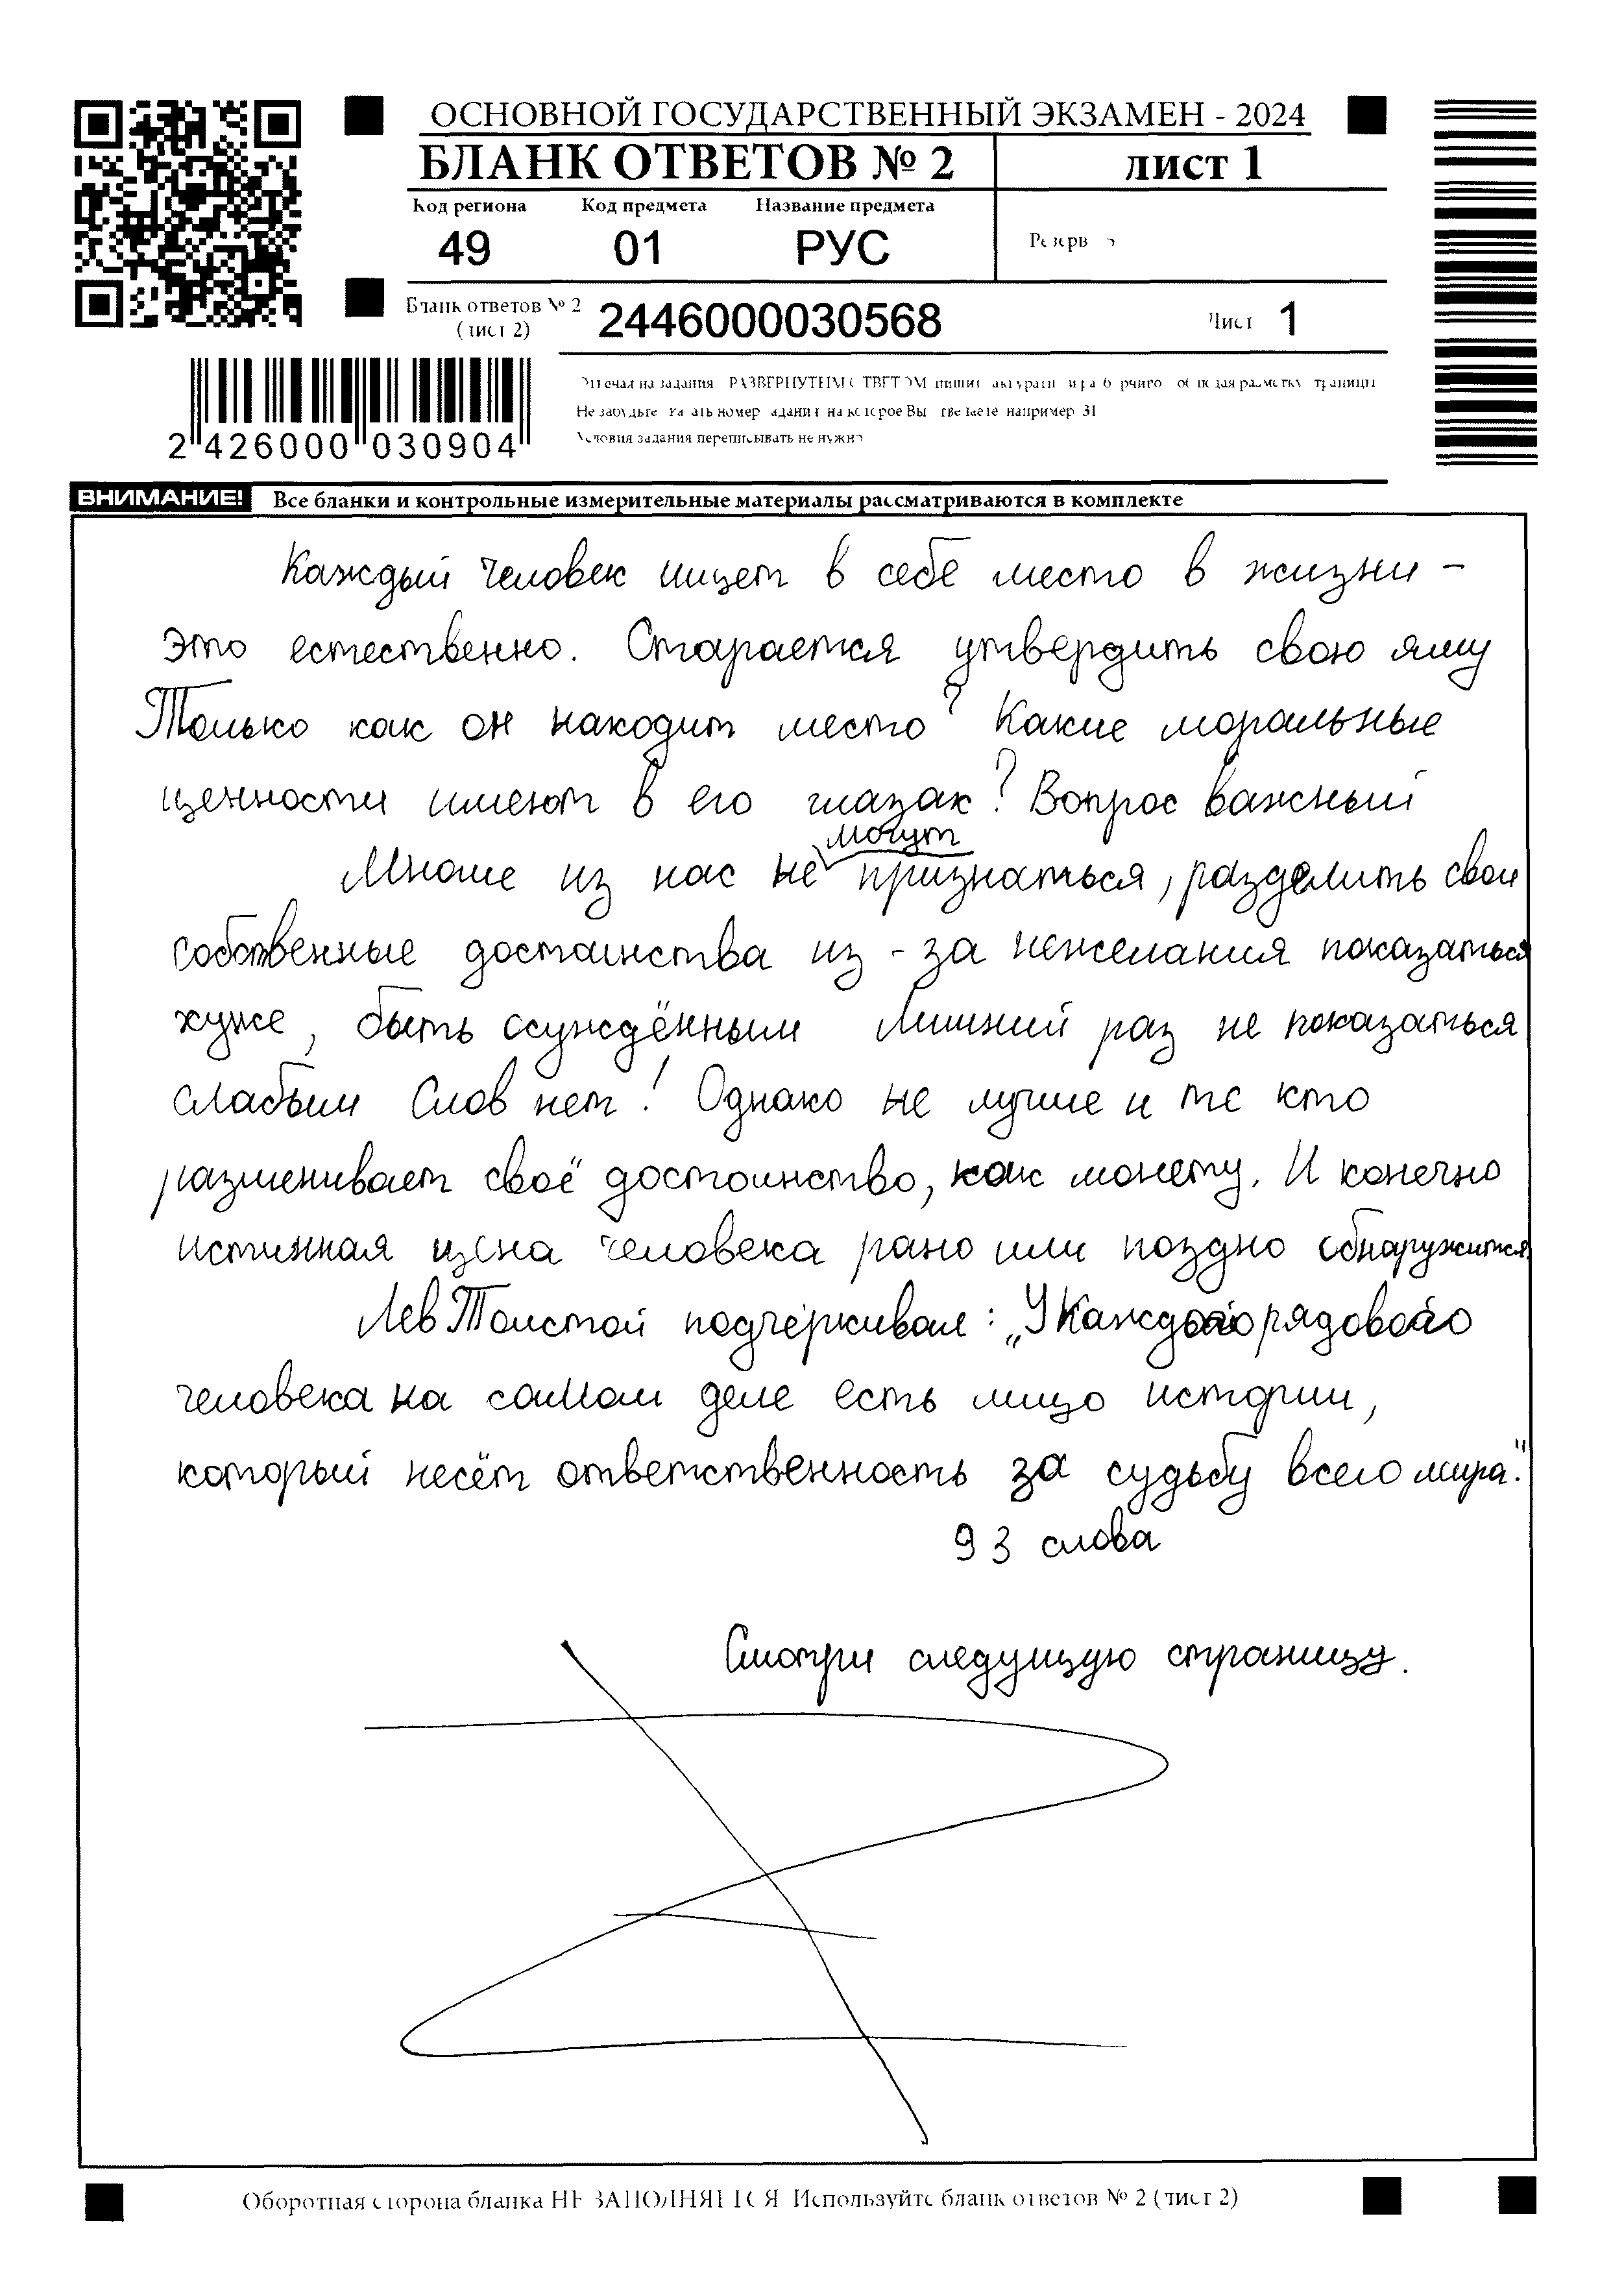 ОСНОВНОЙ ГОСУДАРСТВЕННЫЙ ЭКЗАМЕН - 2024
БЛАНК ОТВЕТОВ № 2
ЛИСТ 1
Код региона Код предмета Название предмета
49 01 РУС
Резерв
Бланк ответов № 2
(лист 2)
2446000030568
Лист 1
2 426000 030904
Отвечая на задания РАЗВЕРНУТЫМ ОТВЕТОМ пишите
Не забудьте указать номер задания на которое Вы отвечаете например 31
Условия задания переписывать не нужно
ВНИМАНИЕ! Все бланки и контрольные измерительные материалы рассматриваются в комплекте
Каждый человек ищет в себе место в жизни –
это естественно. Старается утвердить свою
Только как он находит место? Какие моральные
ценности имеют в его глазах? Вопрос важный
Многие из нас не могут признаться, разделить свои
собственные достаинства из-за нежелания показаться
хуже, быть осуждённым лишний раз не показаться
слабым Слов нет! Однако не лучше и те кто
разменивает своё достоинство, как монету. И конечно
истинная цена человека рано или поздно обнаружится
Лев Толстой подчёркивал: „У каждого рядового
человека на самом деле есть лицо истории,
который несёт ответственность за судьбу всего мира."
93 слова
Смотри следущую страницу.
Оборотная сторона бланка НЕ ЗАПОЛНЯЕТСЯ Используйте бланк ответов № 2 (лист 2)